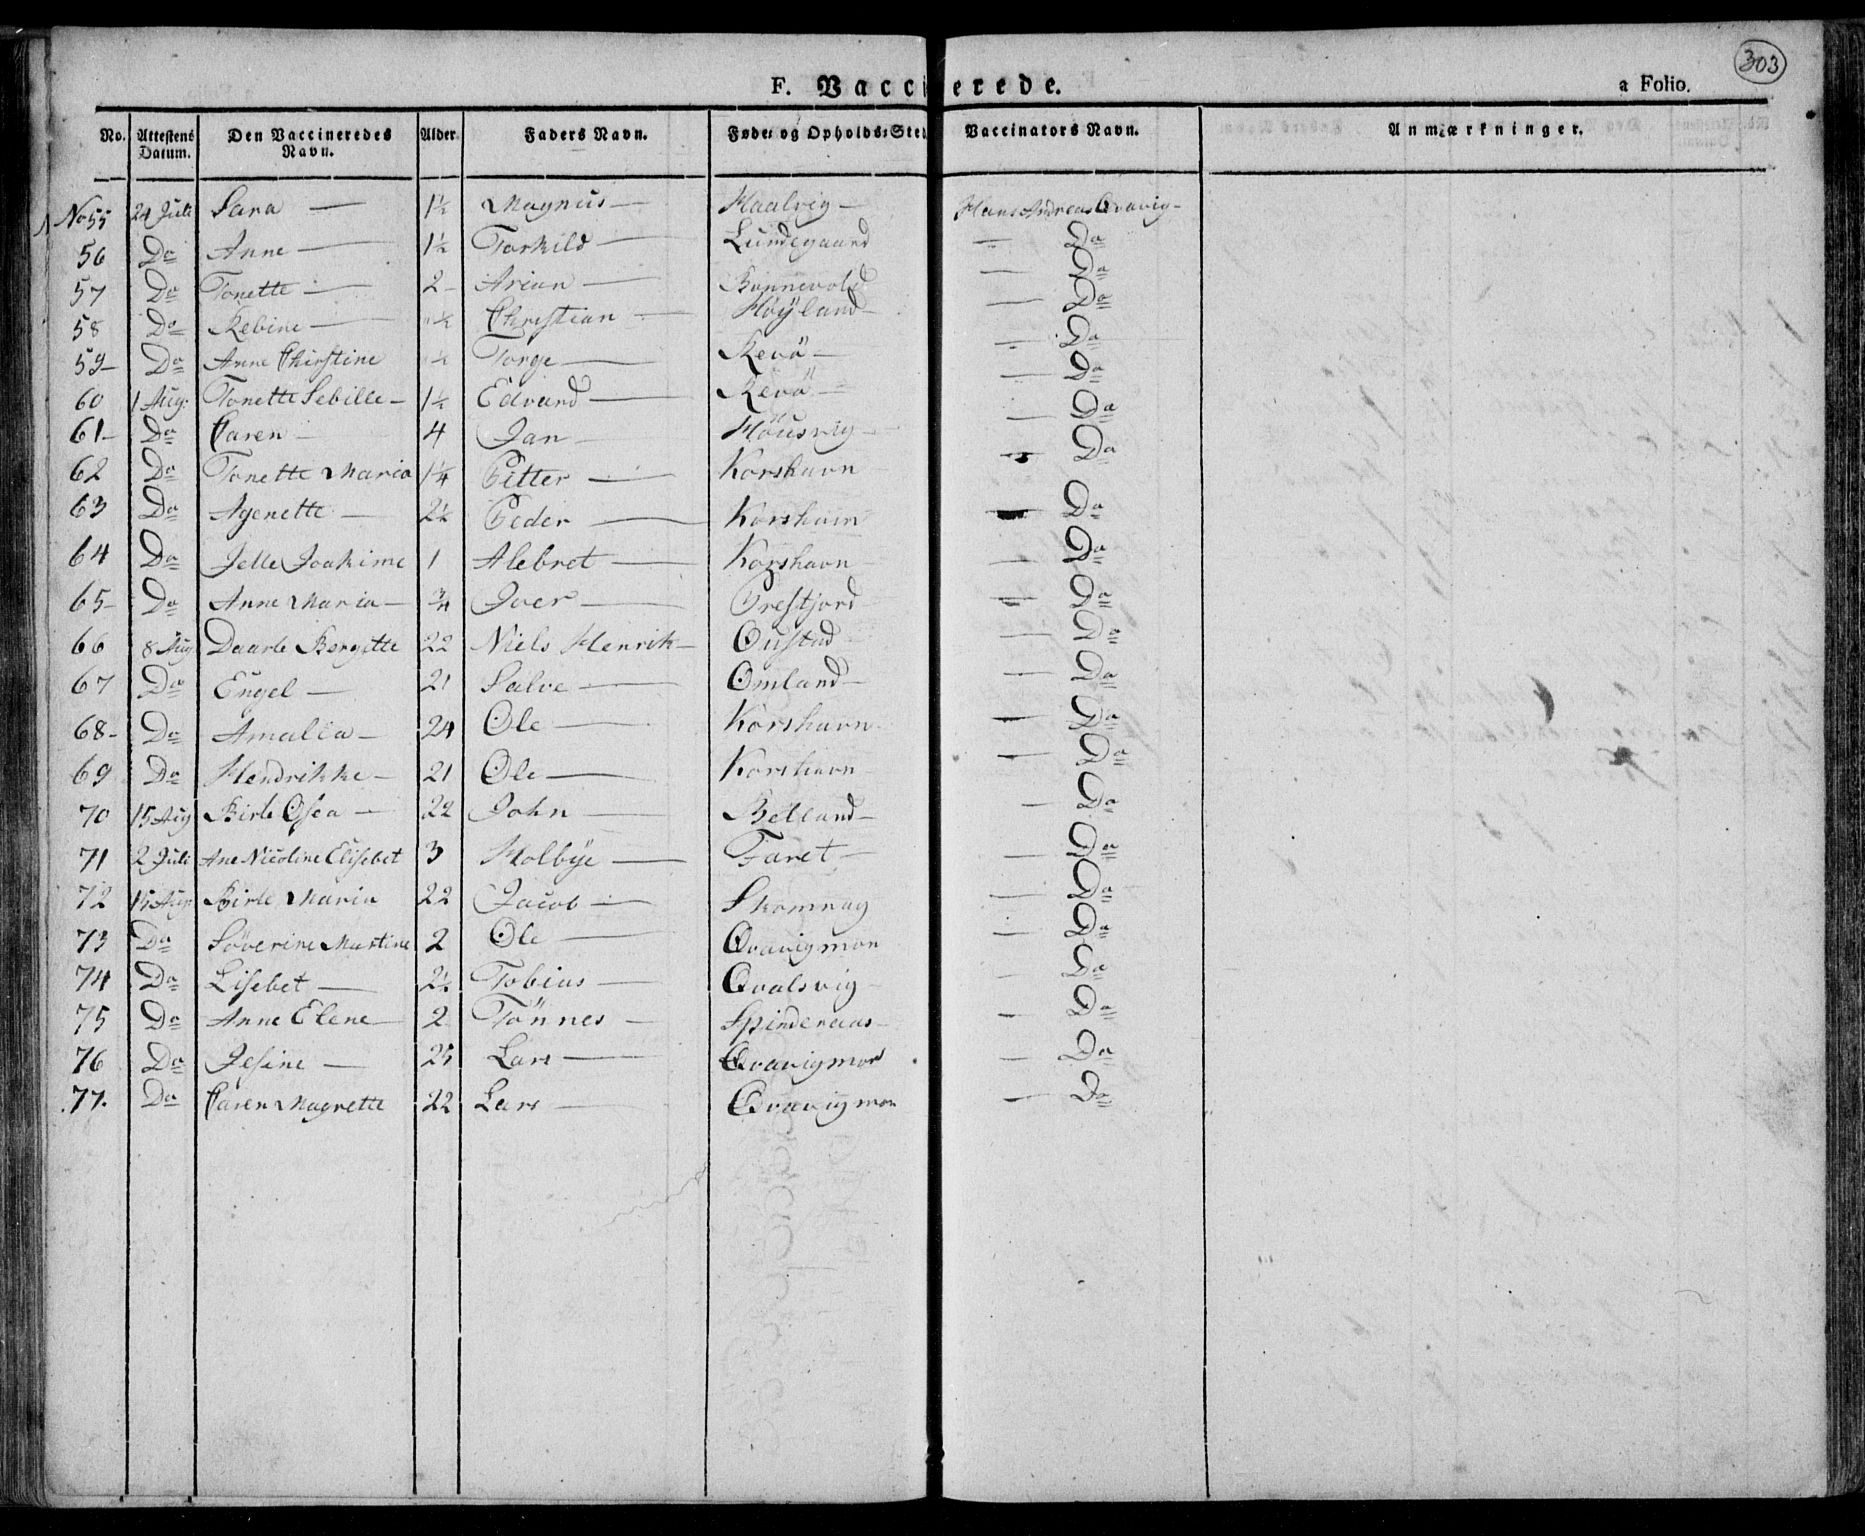 303
F. Vaccinerede. a Folio.
No. Attestens Datum. Den Vaccineredes Navn. Alder. Faders Navn. Føde- og Opholds-Sted Vaccinators Navn. Anmærkninger.
No 55 24 Juli Sara — 1½ Magnus — Haalvig — Hans Andreas Qvavig —
56 Do Anne — 1½ Torkild — Lundegaard — Do
57 Do Tonette — 2 — Arian — Bonnevold — Do
58 Do Rebine — ½ Christian — Höÿland — — Do
59 — Do Anne Chirstine ½ Torge — Revö — — Do
60 1 Aug: Tonette Sebille — 1½ Edvard — Revö — — Do
61 — Do Caren — 4 Jan — Höusvig — — Do
62 Do Tonette Maria 1¼ Pitter — Korshavn — Do
63 Do Agenette — 2½ Peder — Korshavn — Do
64 Do Jelle Joakime 1 Alebret — Korshavn — Do
65 — Do Anne Maria — ¾ Iver — Prestjord — Do
66 8 Aug Daarte Bergitte 22 Niels Henrik — Oustad — Do
67 Do Engel — 21 Salve — Omland — — Do
68 — Do Amalia — 24 Ole — Korshavn — Do
69 Do Hendrikke — 21 Ole — Korshavn — Do
70 15 Aug Birte Osea — 22 John — Belland — — Do
71 2 Juli Ane Nicoline Elisebet 3 Holbye — Faret — — Do
72 15 Aug Birte Maria 22 Jacob — — Do
73 Do Söverine Martine 2 Ole — Qvavigmon — Do
74 Do Lisebet — 2½ Tobias — Qvalsvig — — Do
75 Do Anne Elene — 2 Tönnes — Spindereias — — Do
76 Do Jesine — 25 Lars — Qvavigmon — Do
77. Do Caren Magrette 22 Lars — Qvavigmon — Do